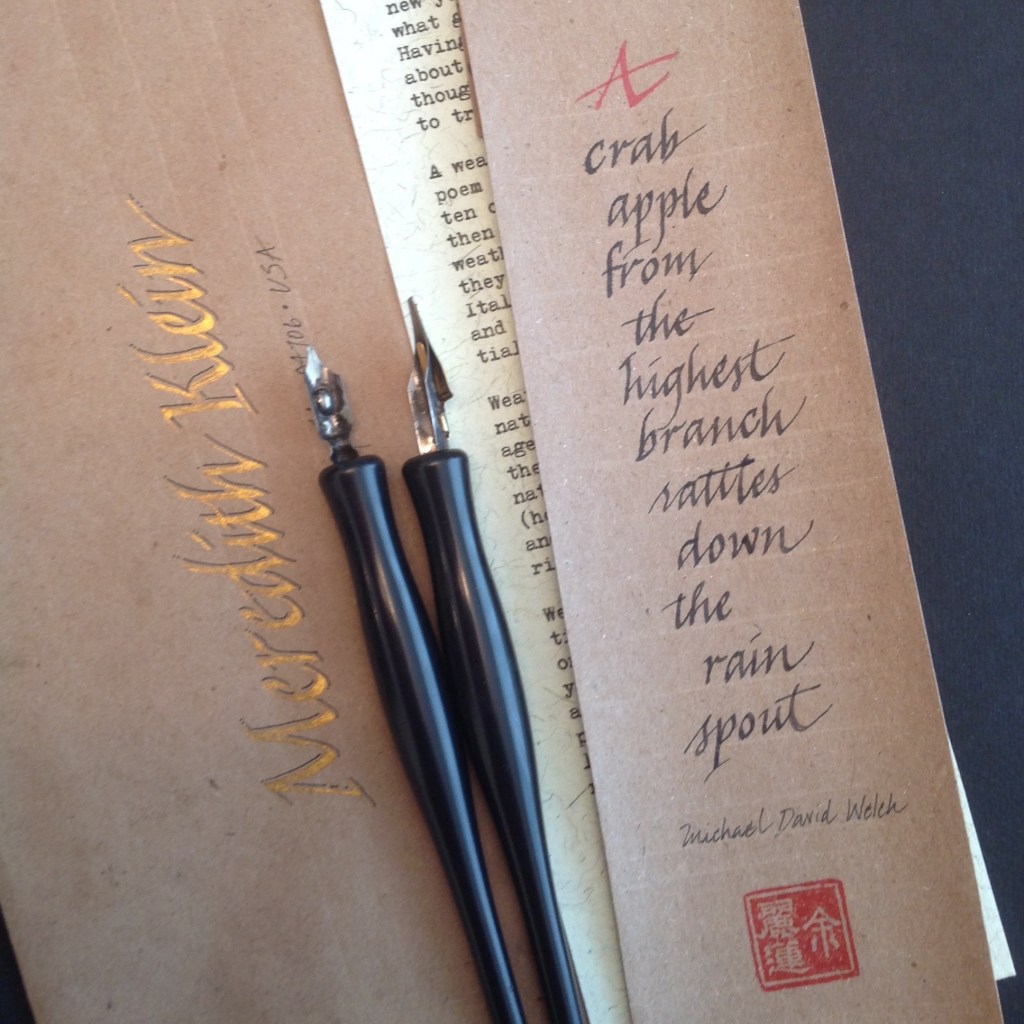 Meredith Klein
706 • USA
new y
what g
Having
about
thoug
to tr
A wea
poem
ten
then
weath
they
Ital
and
tial
Wea
nat
age
the
nat
(ho
and
ri
We
ti
o
y
a
A
crab
apple
from
the
highest
branch
rattles
down
the
rain
spout
Michael David Welch
余麗蓮